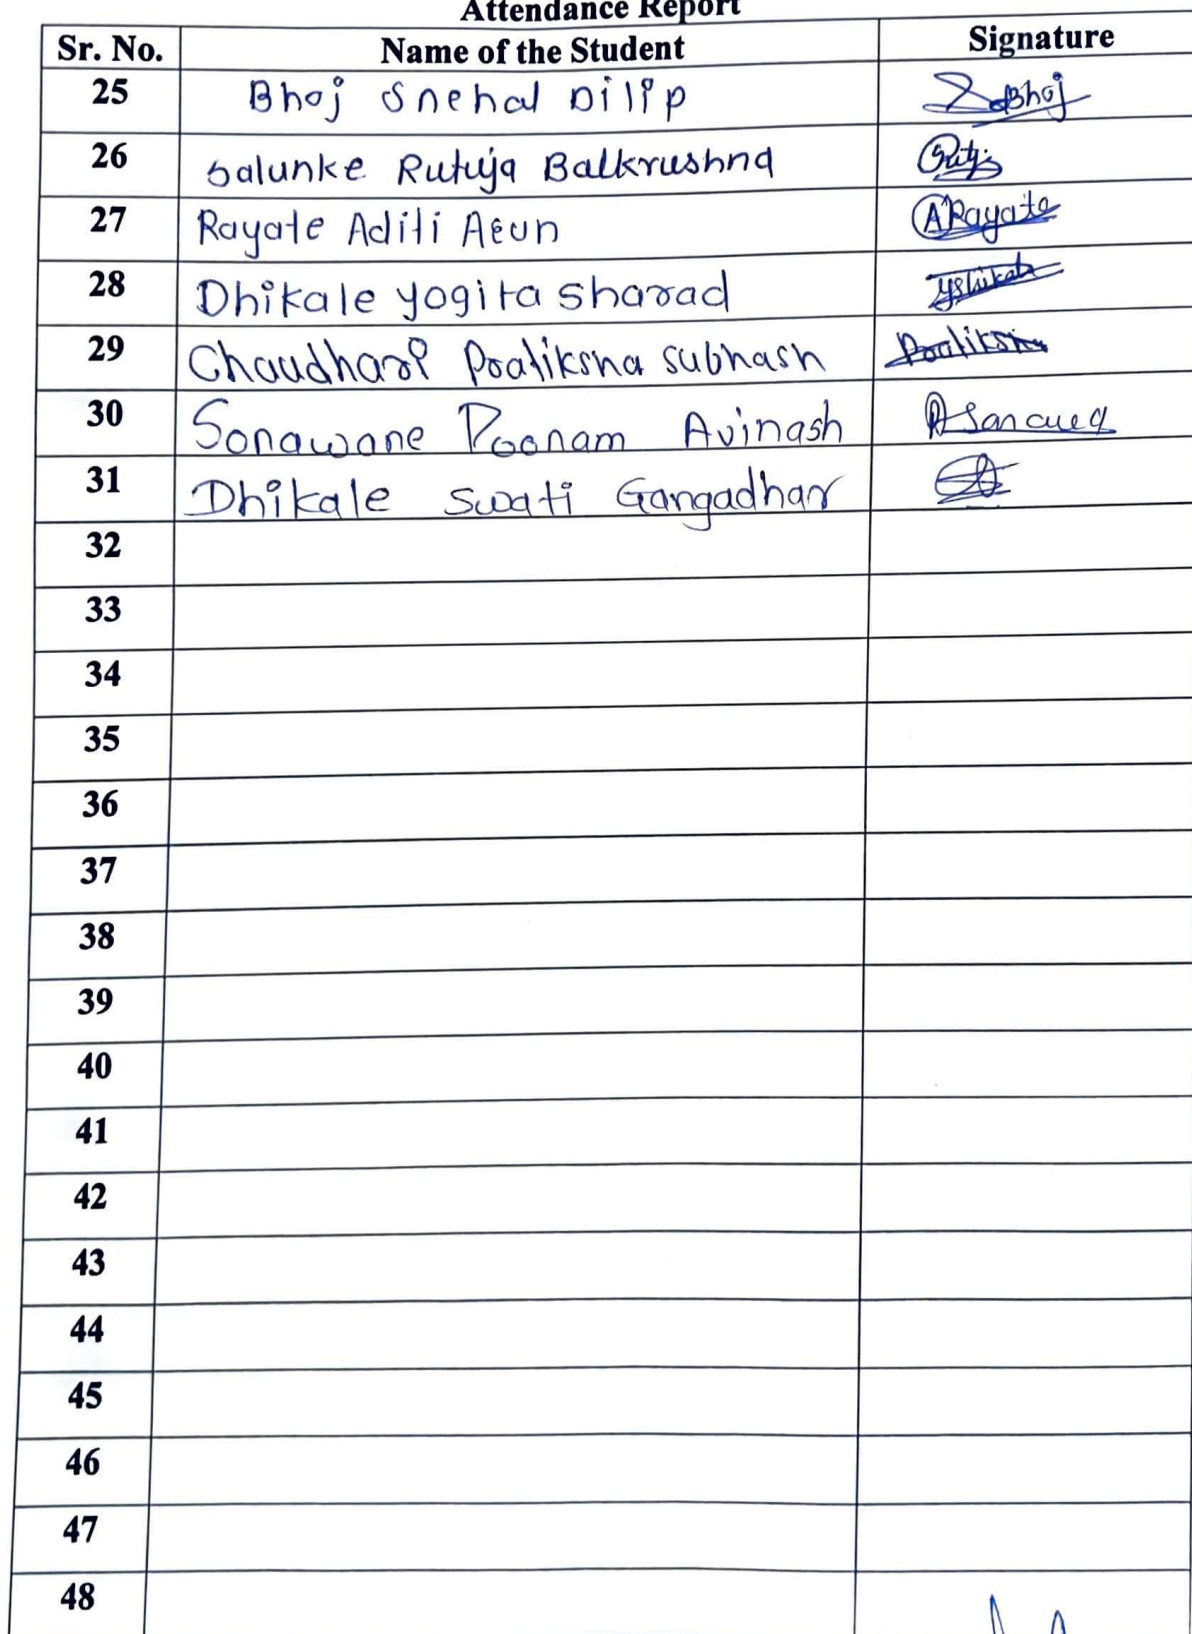 Attendance Report
Sr. No. Name of the Student Signature
25 Bhoj Snehal Dilip Bhoj
26 Salunke Rutuja Balkrushna
27 Rayate Aditi Arun ARayate
28 Dhikale yogita sharad
29 Chaudhari Pratiksha subhash Pratiksha
30 Sonawane Poonam Avinash
31 Dhikale swati Gangadhar
32
33
34
35
36
37
38
39
40
41
42
43
44
45
46
47
48